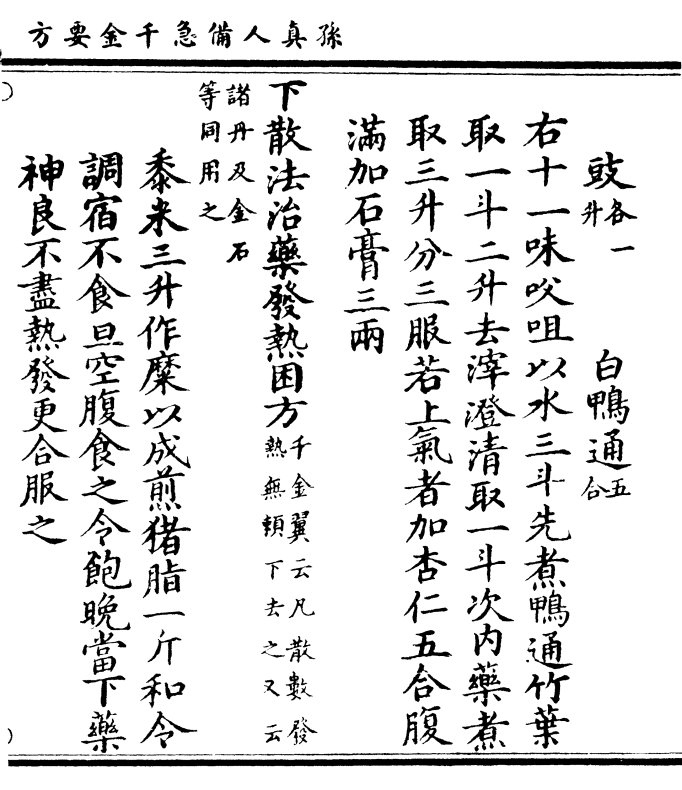 孫真人備急千金要方
豉各一升 白鴨通五合
右十一味㕮咀以水三斗先煮鴨通竹葉
取一斗二升去滓澄清取一斗次内藥煮
取三升分三服若上氣者加杏仁五合腹
滿加石膏三兩
下散法治藥發熱困方千金翼云凡散數發熱無賴下去之又云
諸丹及金石等同用之
黍米三升作糜以成煎猪脂一斤和令
調宿不食旦空腹食之令飽晚當下藥
神良不盡熱發更合服之